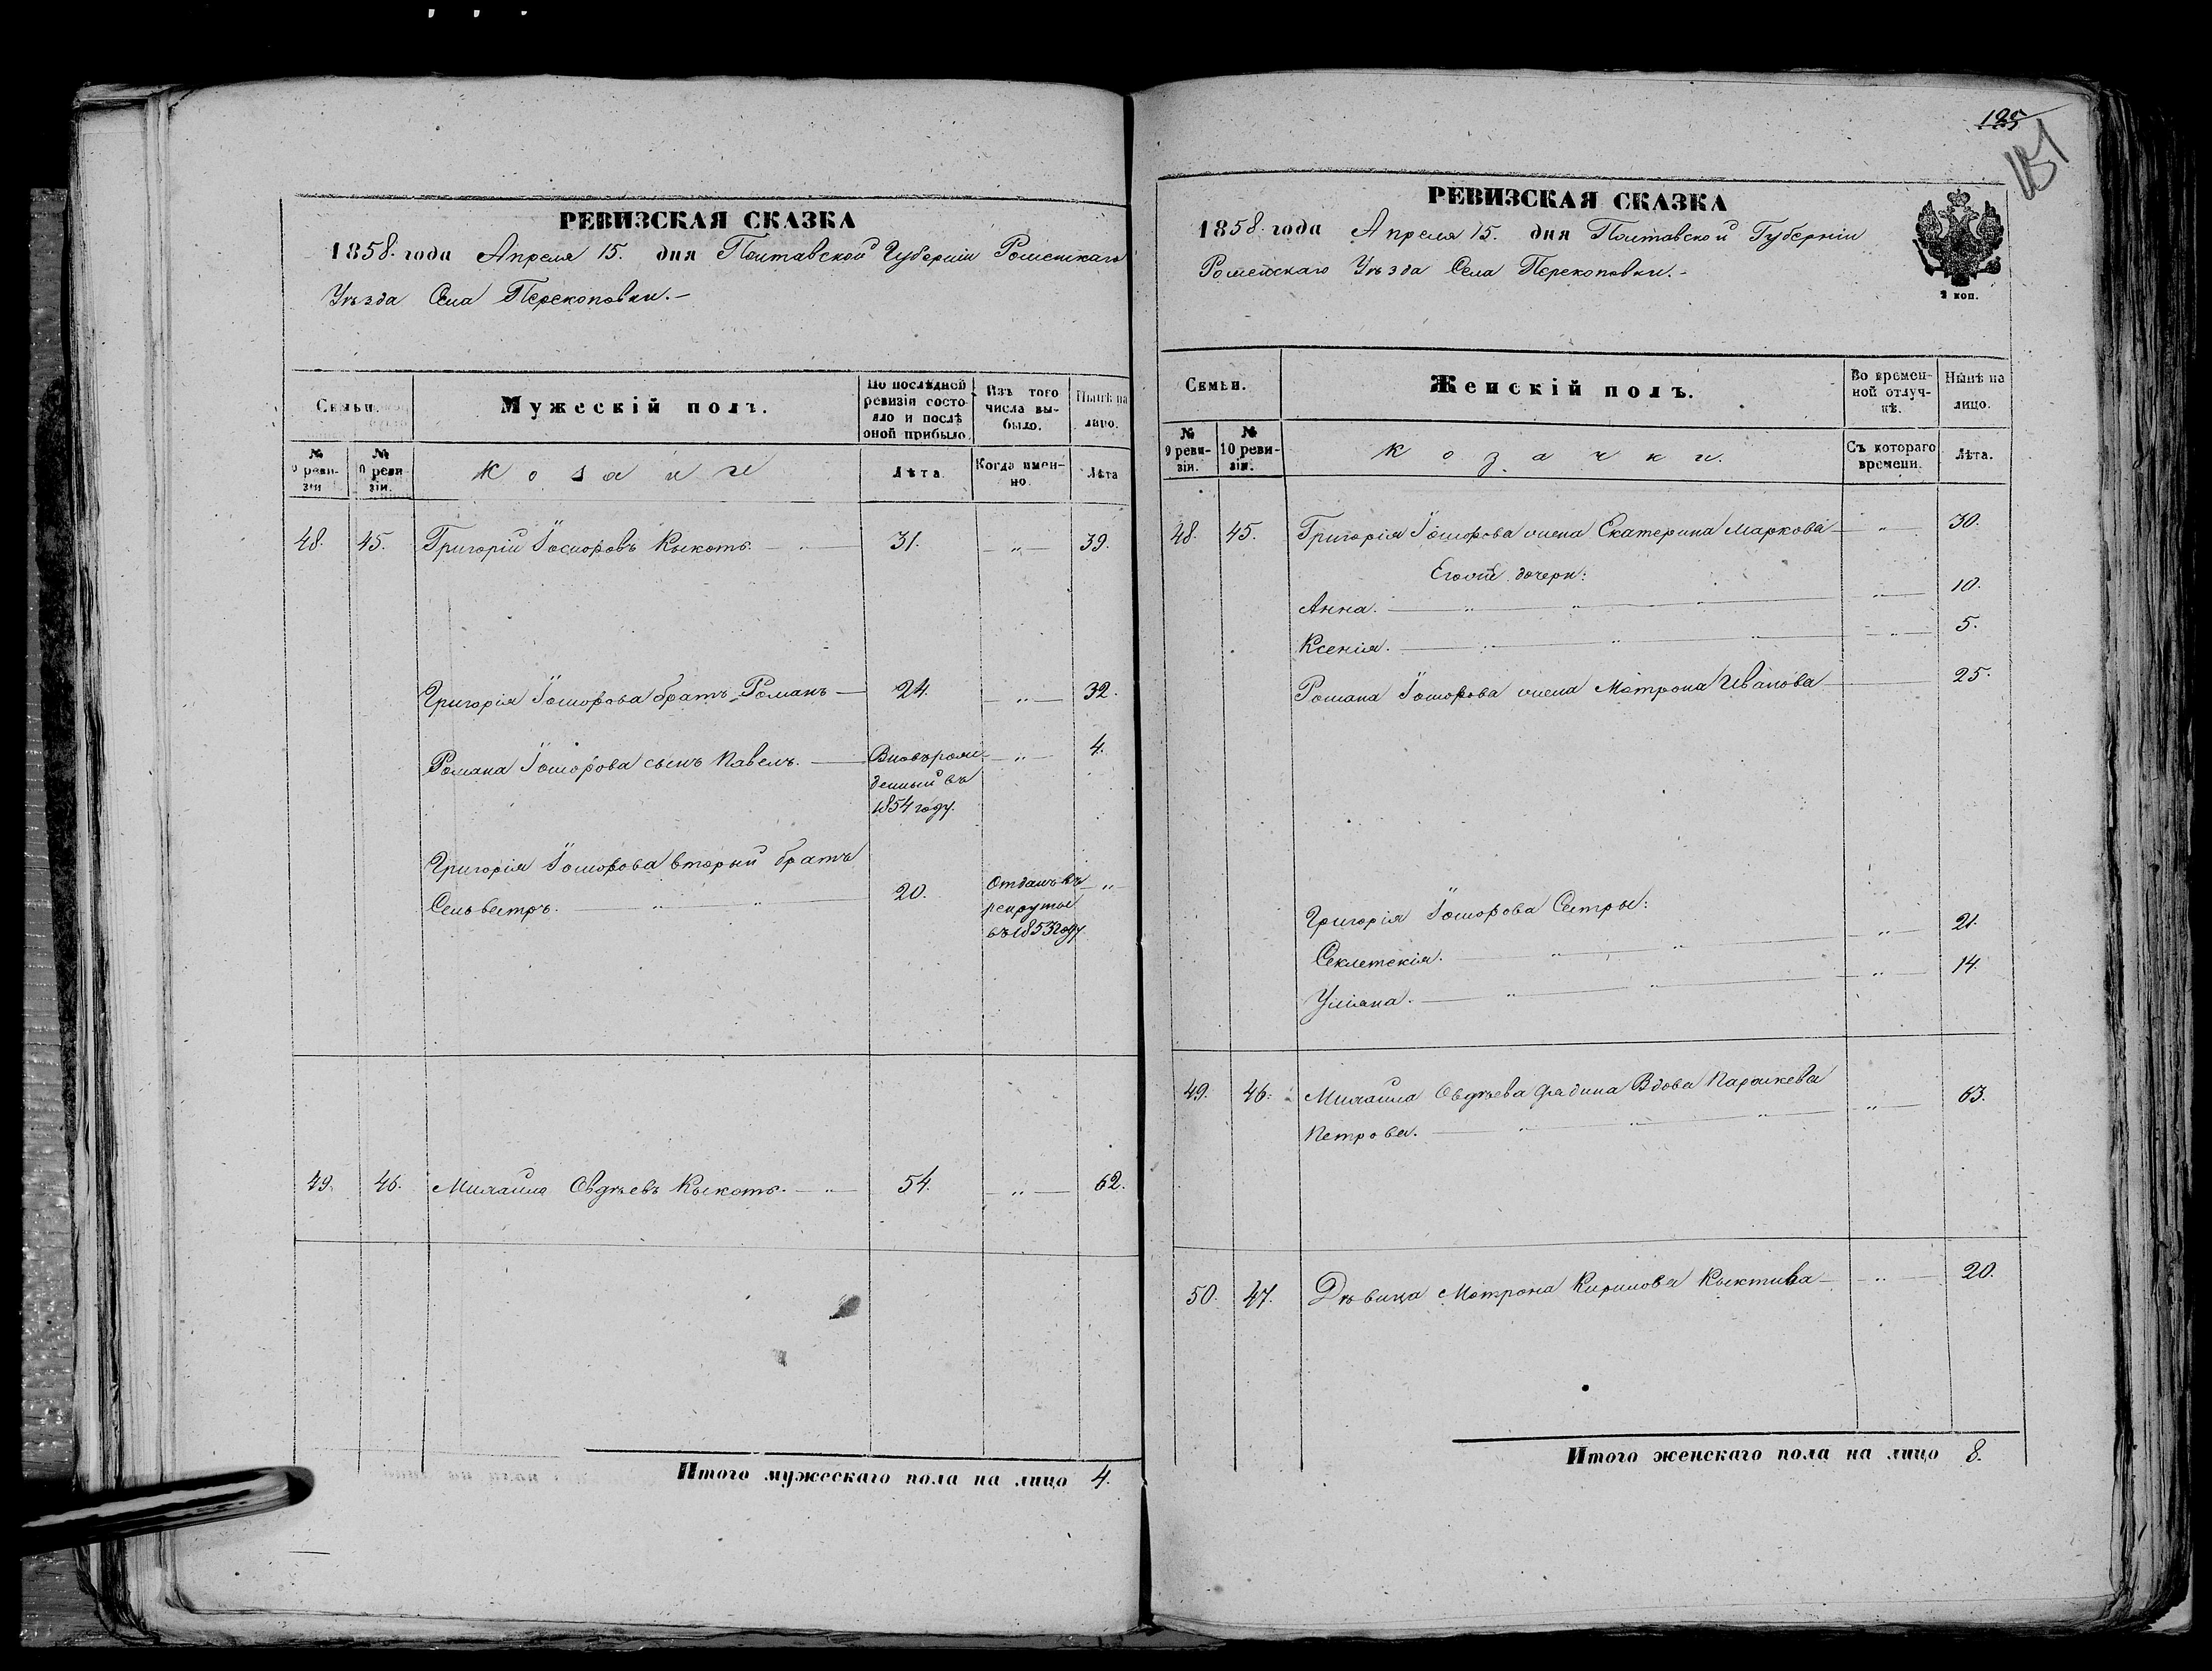 РЕВИЗСКАЯ СКАЗКА
1858. года Апреля 15. дня Полтавской Губерніи Роменскаго
Уѣзда Села Перекоповки.-
Семьи.
Мужескій полъ.
По послѣдней ревизіи состояло и послѣ оной прибыло.
Изъ того числа выбыло.
Нынѣ на лицо.
№ 9 ревизіи
№ 10 ревизіи.
Козаки
Лѣта.
Когда именно.
Лѣта
48. 45. Григорій Іосифовъ Кыкоть. — 31. — „ — 39.
Григорія Іосифова братъ Романъ — 24. — „ — 32.
Романа Іосифова сынъ Павелъ. — Вновьрож- — „ — 4.
денный въ
1854 году.
Григорія Іосифова вторый братъ
Сельвестръ. — „ — „ — 20. Отданъ въ — „ —
рекруты
въ 1853 году
49. 46. Михаила Овдѣевъ Кыкоть. — „ — 54. — „ — 62.
Итого мужескаго пола на лицо 4.
125
151
РЕВИЗСКАЯ СКАЗКА
1858. года Апреля 15. дня Полтавской Губерніи
Роменскаго Уѣзда Села Перекоповки.-
2 коп.
Семьи.
Женскій полъ.
Во временной отлучкѣ.
Нынѣ на лицо.
№ 9 ревизіи.
№ 10 ревизіи.
Козачки.
Съ котораго времени.
Лѣта.
48. 45. Григорія Іосифова жена Екатерина Маркова — „ — 30.
Егожъ дочери:
Анна. — „ — „ — „ — 10.
Ксенія. — „ — „ — „ — 5.
Романа Іосифова жена Мотрона Иванова — 25.
Григорія Іосифова Сестры:
Секлетскія. — „ — „ — „ — 21.
Уліяна. — „ — „ — „ — 14.
49. 46. Михаила Овдѣева Вдова Параскева
Петрова. — „ — „ — „ — „ — 63.
50. 47. Дѣвица Мотрона Кирилова Кыктива — „ — 20.
Итого женскаго пола на лицо 8.